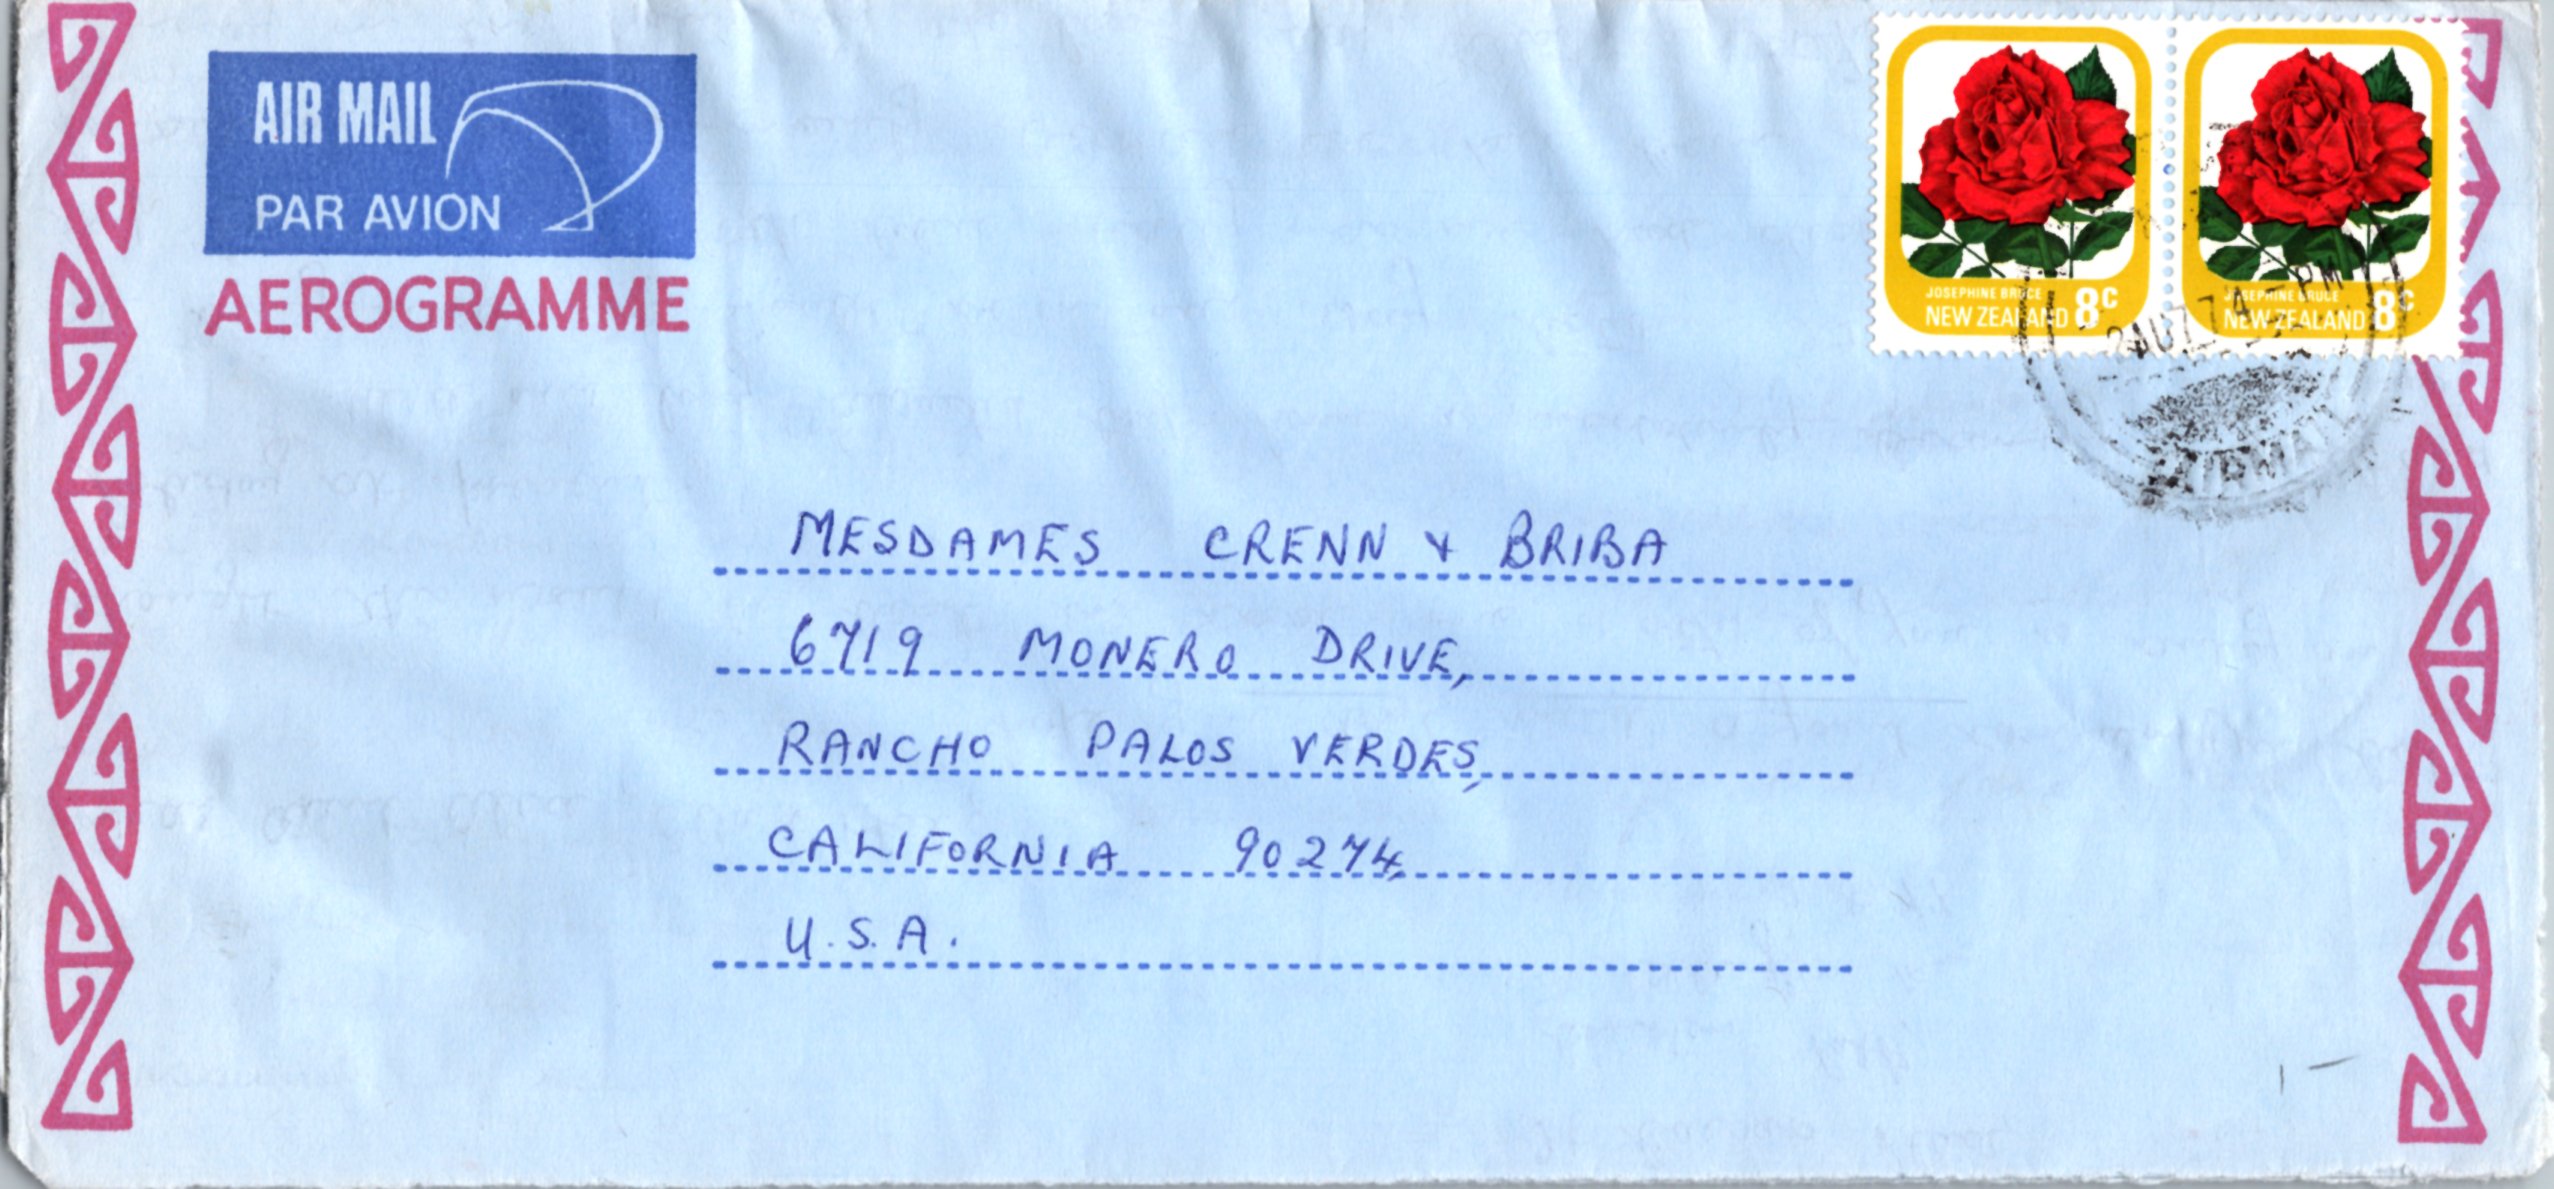 AIR MAIL
PAR AVION
AEROGRAMME
JOSEPHINE BRUCE
NEW ZEALAND 8c
JOSEPHINE BRUCE
NEW ZEALAND 8c
-PM
AIRMAIL
MESDAMES CRENN & BRIBA
6719 MONERO DRIVE,
RANCHO PALOS VERDES,
CALIFORNIA 90274,
U.S.A.